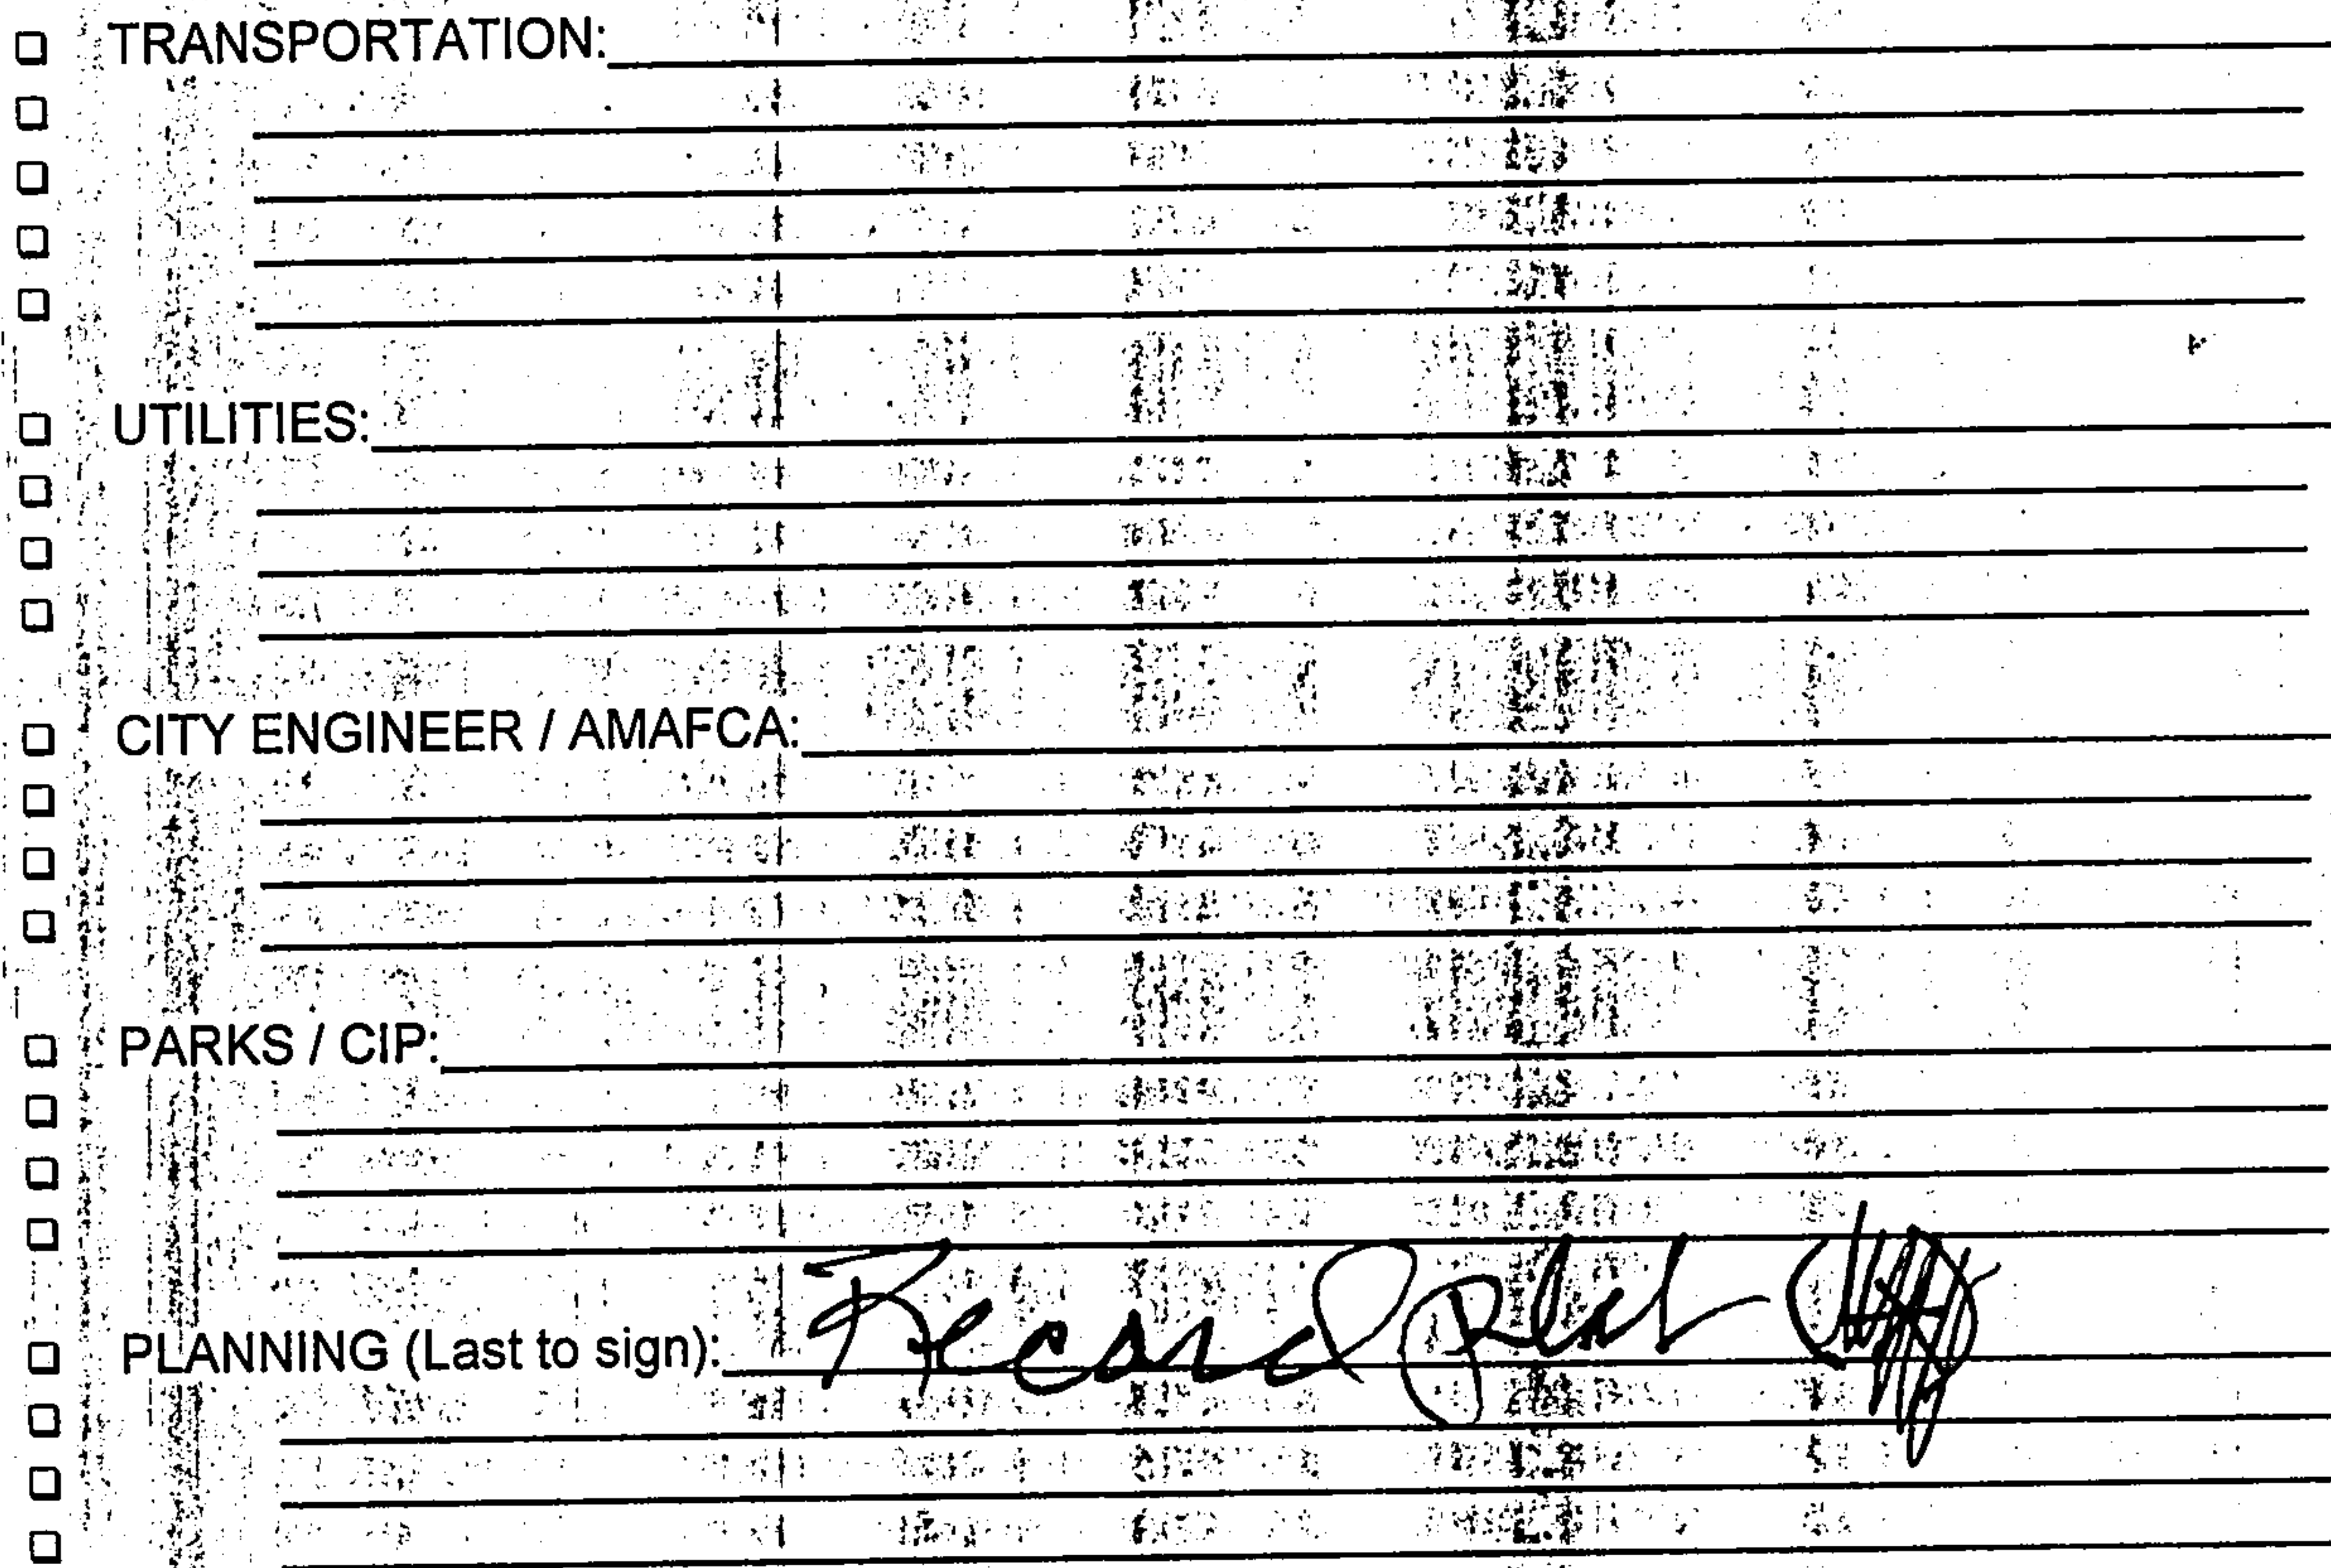 TRANSPORTATION:
UTILITIES:
CITY ENGINEER / AMAFCA:
PARKS / CIP:
PLANNING (Last to sign): Record plat